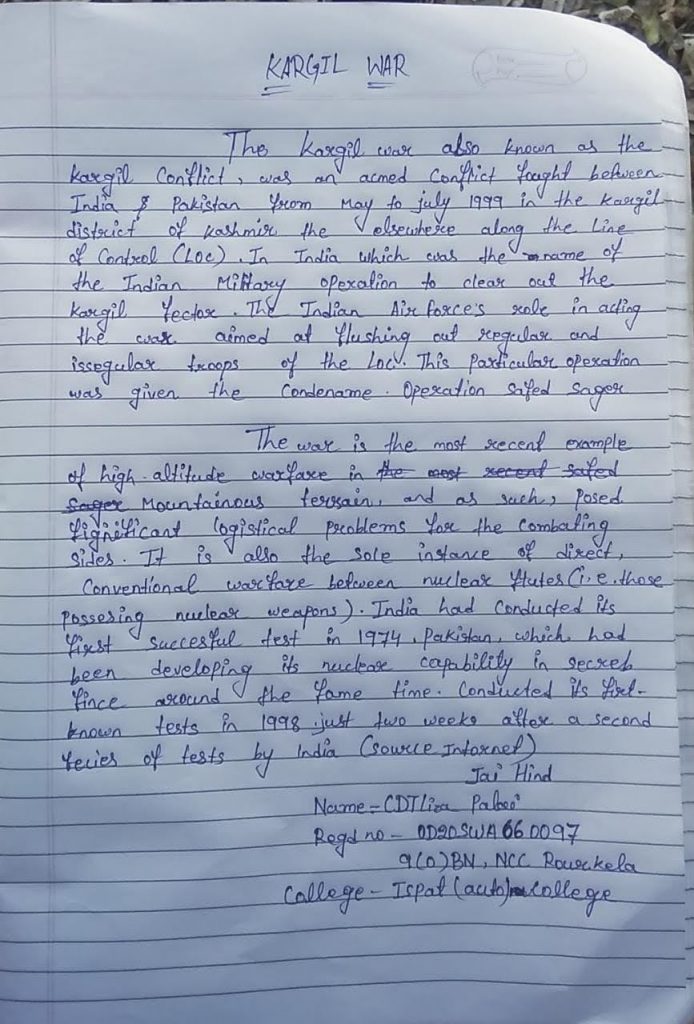 KARGIL WAR
The Kargil war also known as the
Kargil Conflict, was an acmed Conflict fought between
India & Pakistan from May to july 1999 in the Kargil
district of Kashmir the elsewhere along the Line
of Control (LOC). In India which was the name of
the Indian Military operation to clear out the
Kargil Sector. The Indian Air force's role in acting
the war aimed at flushing out regular and
issegular troops of the Loc. This Particular operation
was given the Condename. Operation Safed Sager
The war is the most recent example
of high-altitude warfare in the most recent Safed
Sager Mountainous terrain, and as such, posed
Significant logistical problems for the combating
sides. It is also the sole instance of direct,
Conventional warfare between nuclear States (i.e. those
possesing nuclear weapons). India had conducted its
first succesful test in 1974, Pakistan, which had
been developing its nuclear capability in secret
Since around the Same time. Conducted its first-
known tests in 1998 just two weeks after a second
Series of tests by India (source Internet)
Jai Hind
Name - CDT Liza
Regd no - OD20SWA660097
9(O)BN, NCC Rourkela
College - Ispat (auto) college